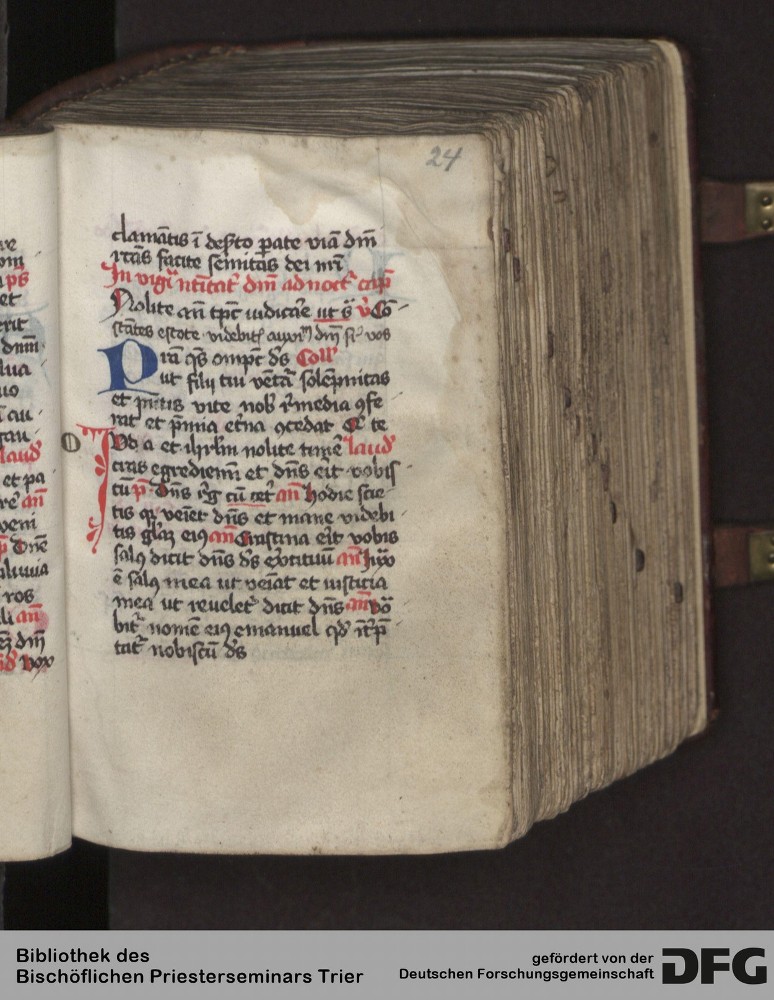 24
clamātis ī deſto pate viā dm̄
rc̄as facite ſemitas dei nr̄i
In vigi̅ ntītat dm̄ ad noct cap̄
Nolite an̄ tpc̄ iudicare ut s̄ v̄ Cō
ſtātes eſtote videbit auxi dm̄ ſr vos
Pra qs om̄pc̄ ds Coll
ut filii tui vētā ſolēpnitas
et pn̄tis vite nob rmedia 9fe
rat et p̄mia et̄na 9cedat te
O
Iuda et ihrlm nolite timē laud
cras egrediem̄ et dn̄s erit vobiſ
cū p̄ dn̄s rg cū cet an̄ hodie ſcie
tis qr veiet dn̄s et mane videbi
tis glaz ei9 an̄ Craſtina erit vobis
ſal9 dicit dn̄s ds exercituū an̄
ē ſal9 mea ut veiat et iuſticia
mea ut reuelet dicit dn̄s an̄ vō
bit nomē ei9 emanuel qd īt̄p̄
tat nobiſcū ds
ps
et
erit
dnm
laud
et pa
an̄
veni
ros
an̄
dm̄
vox
Bibliothek des
Bischöflichen Priesterseminars Trier
gefördert von der
Deutschen Forschungsgemeinschaft
DFG